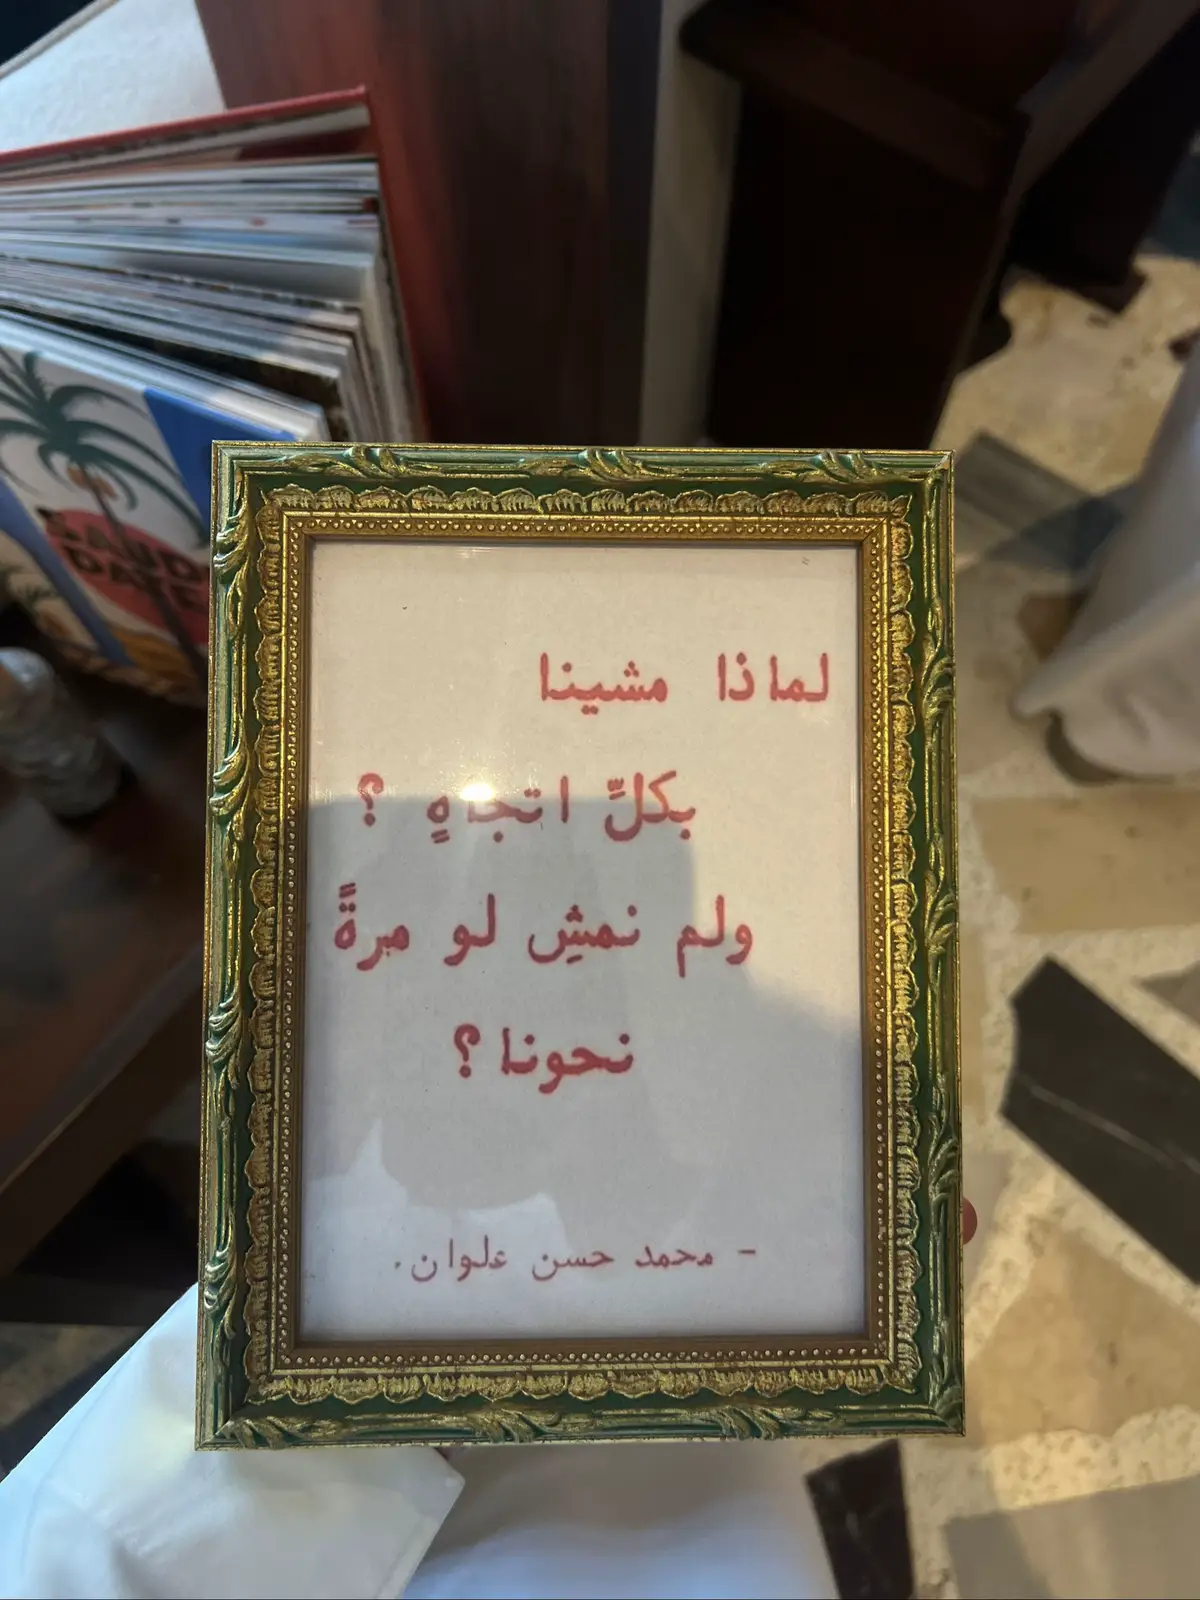 SAUDI
DATES
لماذا مشينا
بكلِّ اتجاهٍ ؟
ولم نمشِ لو مرةً
نحونا ؟
- محمد حسن علوان.